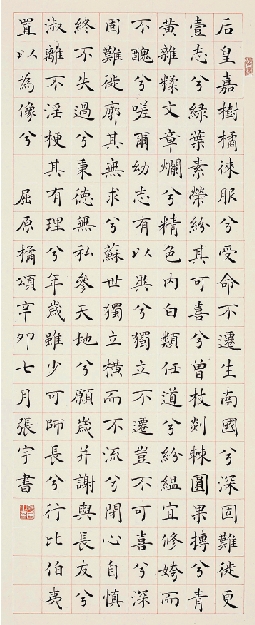 后皇嘉樹橘徠服兮受命不遷生南國兮深固難徙更
壹志兮綠葉素榮紛其可喜兮曾枝剡棘圓果摶兮青
黃雜糅文章爛兮精色內白類任道兮紛緼宜修姱而
不醜兮嗟爾幼志有以異兮獨立不遷豈不可喜兮深
固難徙廓其無求兮蘇世獨立橫而不流兮閉心自慎
終不失過兮秉德無私參天地兮願歲并謝與長友兮
淑離不淫梗其有理兮年歲雖少可師長兮行比伯夷
置以為像兮 屈原橘頌辛卯七月張宇書